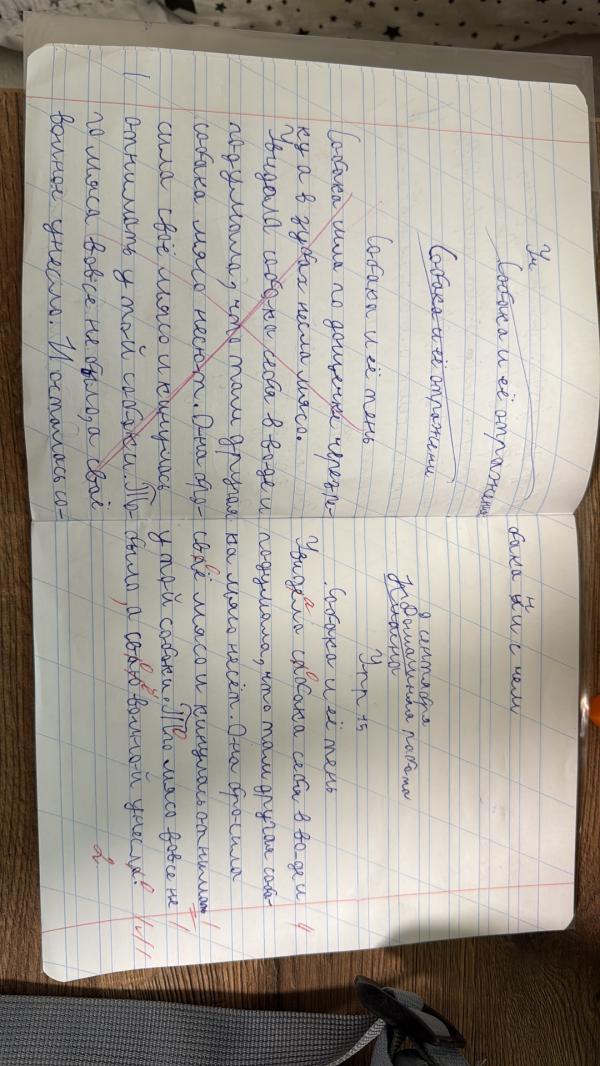 Ук
Собака и её отражение
Собака и её отражени
Собака и её тень
Собака шла по дощечке через ре-
ку а в зубах несла мясо.
Увидала собака себя в воде и
подумала, что там другая
собака мясо несёт. Она бро-
сила своё мясо и кинулась
отнимать у той собаки. То-
го мяса вовсе не было, а своё
волною унесло. И осталась со-
бака ни с чем
8 сентября
Домашняя работа
Упр 15
Собака и её тень
Увидела собака себя в воде и
подумала, что там другая соба-
ка мясо несёт. Она бросила
своё мясо и кинулась отнимать
у той собаки. Тво мяса вовсе не
было, а свою волной унесла.
2